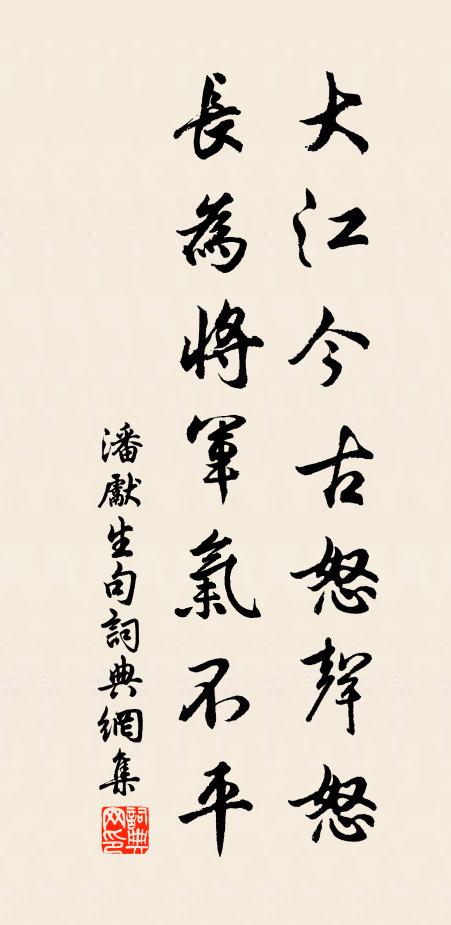 大江今古怒聲怒
長為將軍氣不平
潘獻生句詞典網集
詞典
网印